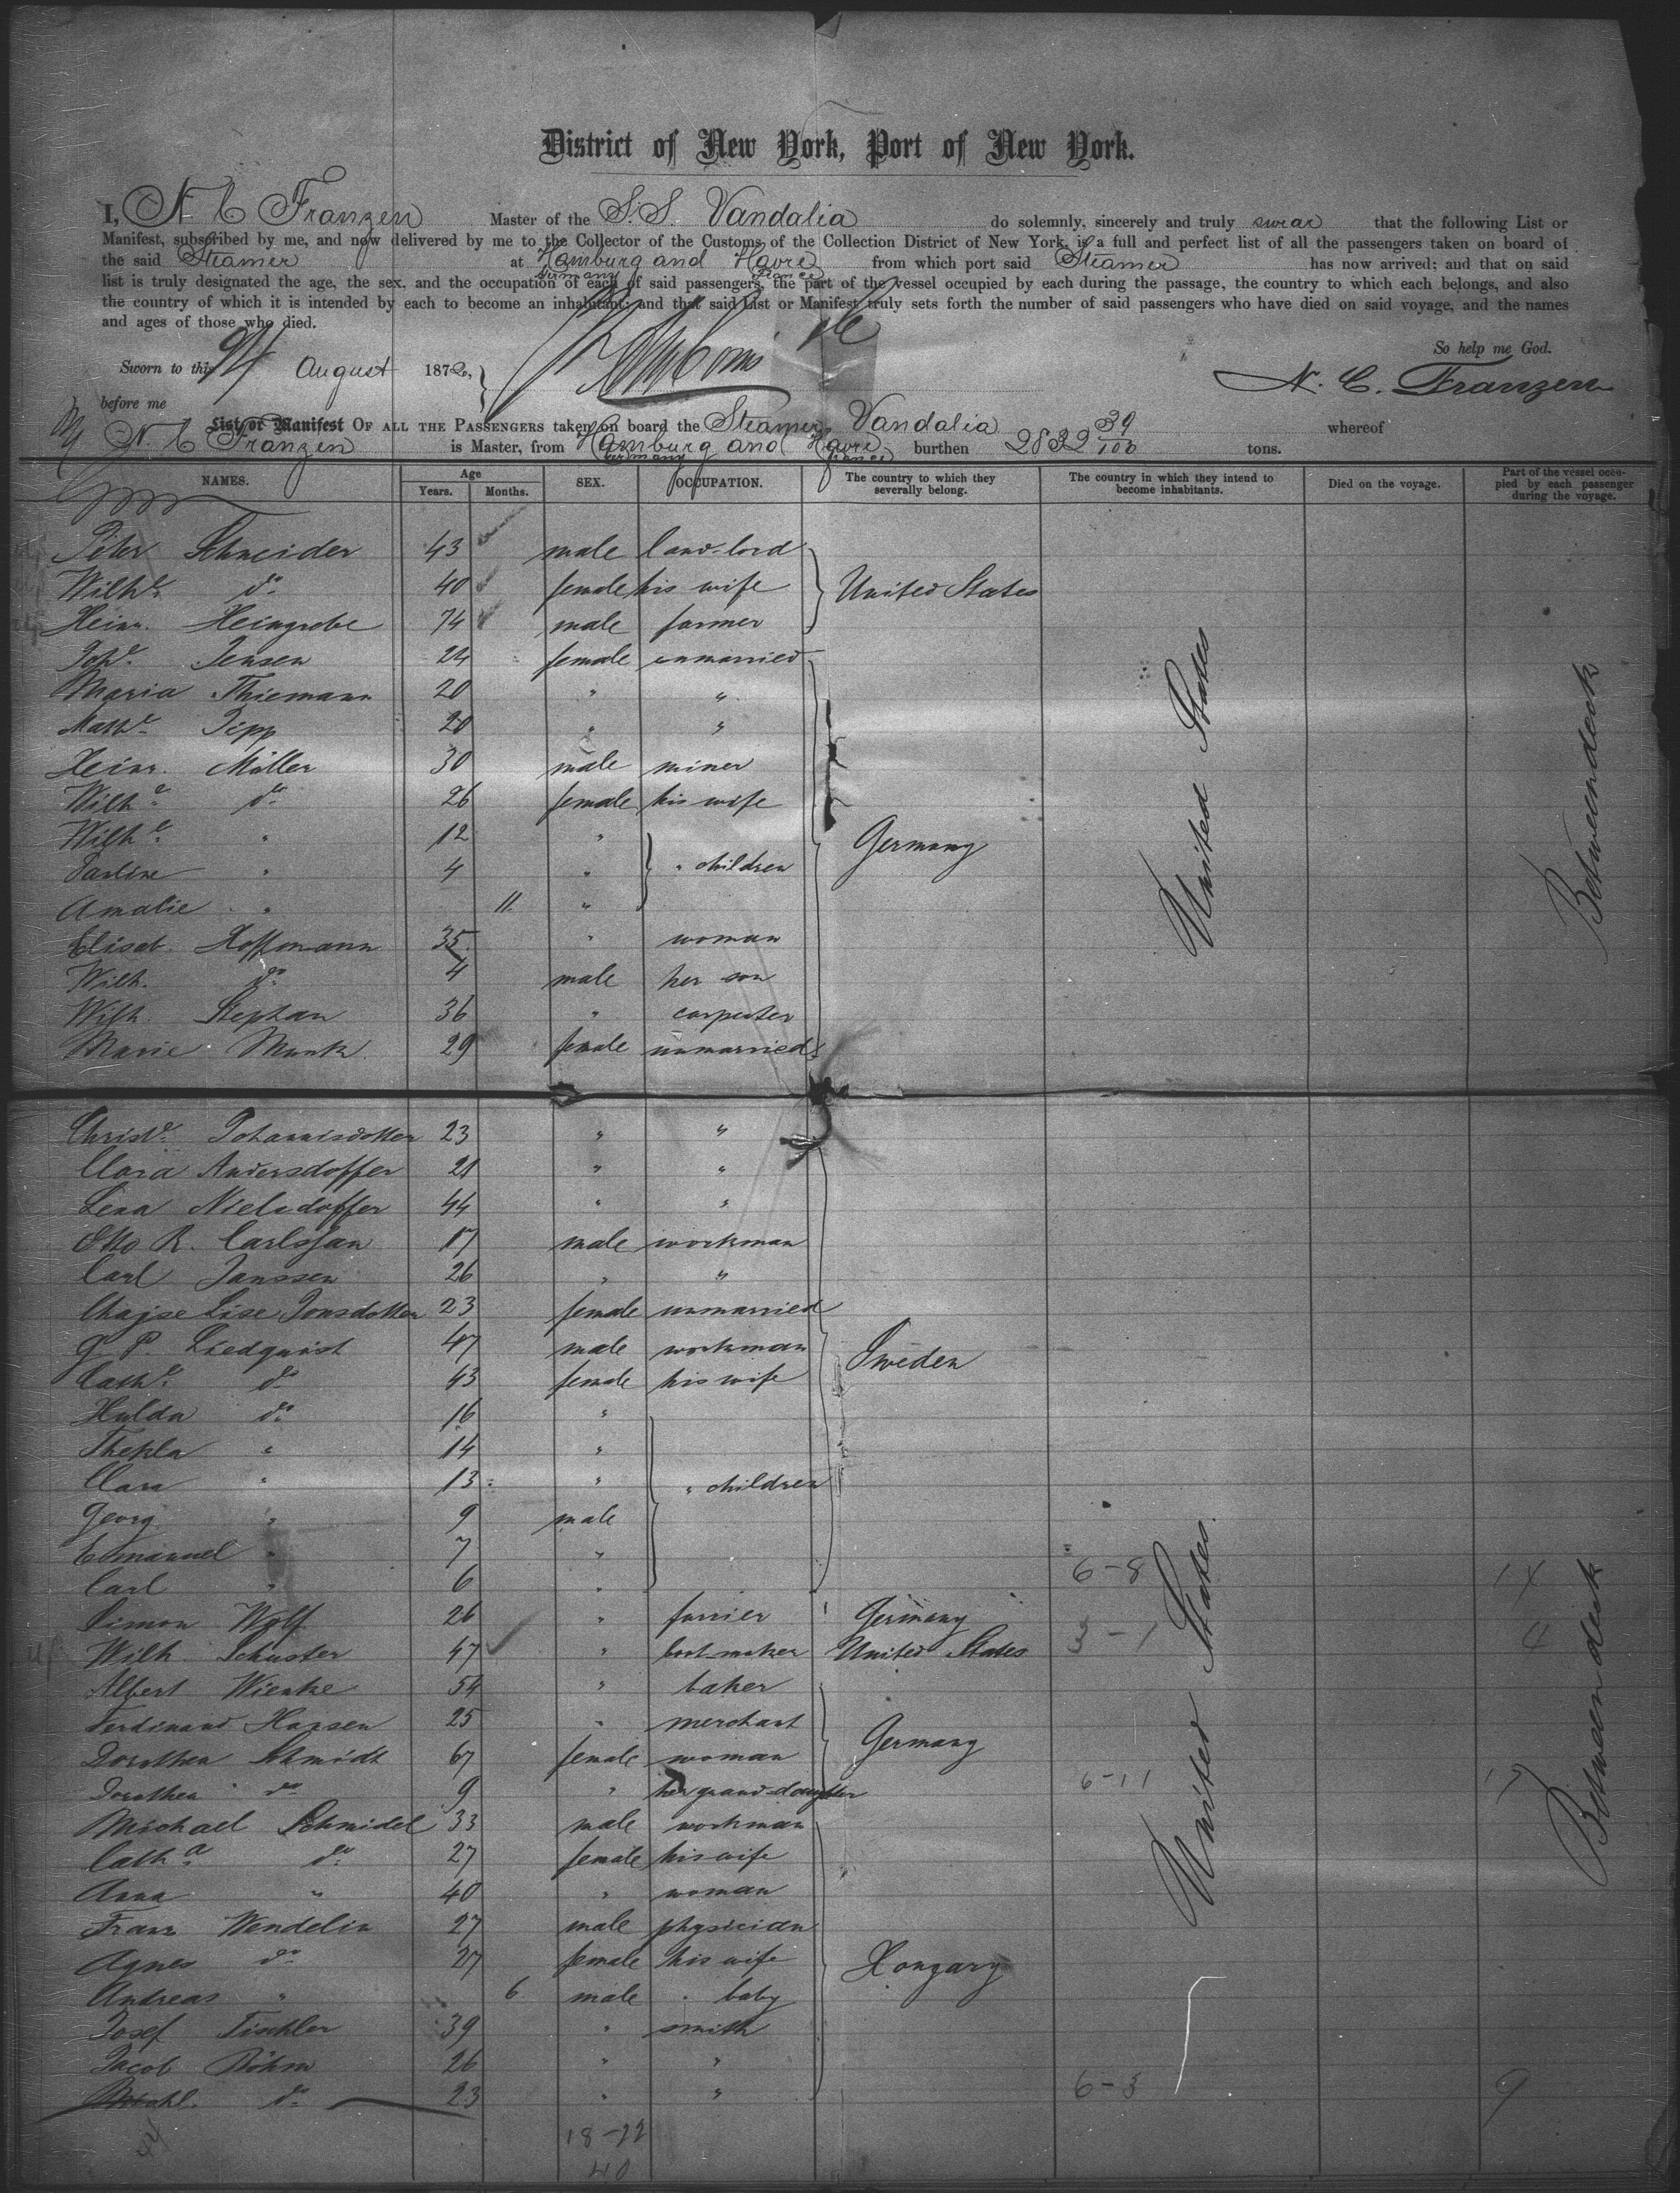 District of New York, Port of New York.
I, N C Franzen Master of the S.S. Vandalia do solemnly, sincerely and truly swear that the following List or
Manifest, subscribed by me, and now delivered by me to the Collector of the Customs of the Collection District of New York, is a full and perfect list of all the passengers taken on board of
the said Steamer at Hamburg and Havre from which port said Steamer has now arrived; and that on said
Germany France
list is truly designated the age, the sex, and the occupation of each of said passengers, the part of the vessel occupied by each during the passage, the country to which each belongs, and also
the country of which it is intended by each to become an inhabitant; and that said List or Manifest truly sets forth the number of said passengers who have died on said voyage, and the names
and ages of those who died.
So help me God.
Sworn to this August 187
N. C. Franzen
before me
List or Manifest OF ALL THE PASSENGERS taken on board the Steamer Vandalia whereof
N. C Franzen is Master, from Hamburg and Havre burthen 2832 39/100 tons.
Germany France
NAMES. Age Years. Months. SEX. OCCUPATION. The country to which they severally belong. The country in which they intend to become inhabitants. Died on the voyage. Part of the vessel occupied by each passenger during the voyage.
Peter Schneider 43 male land-lord
Wilhe. do 40 female his wife United States
Heinr. Heingrobe 74 male farmer
Johe. Jensen 24 female unmarried
Maria Thiemann 20 " "
Mathe. Tipp 20 " "
Heinr. Möller 30 male miner
Wilhe. do 26 female his wife
Wilhe. " 12 "
Pauline " 4 " " children Germany United States Betweendeck
Amalie " 11. "
Elisab. Hoffmann 35. " woman
Wilh. do 4 male her son
Wilh. Stephan 36 " carpenter
Marie Munk 29 female unmarried
Christe. Johannisdotter 23 " "
Clara Andersdoffer 21 " "
Lena Nielsdoffer 44 " "
Otto R. Carlssan 17 male workman
Carl Janssen 26 " "
Chajse Lise Jonsdotter 23 female unmarried
G. P. Liedquist 47 male workman
Cathe. do 43 female his wife Sweden
Hulda do 16 "
Thekla " 14 "
Clara " 13 " " children
Georg " 9 male
Emanuel " 7 "
Carl " 6 " 6-8 14
Simon Wolf 26 " furrier Germany
Wilh. Schuster 47 " boot-maker United States 3-1 4
Albert Wienke 54 " baker
Ferdinand Hansen 25 " merchant
Dorothea Schmidt 67 female woman Germany
Dorothea do 9 " her grand-daughter 6-11 17
Michael Schmidel 33 male workman
Catha. do 27 female his wife United States Betweendeck
Anna " 40 " woman
Franz Wendelin 27 male physician
Agnes do 27 female his wife Hongary
Andreas " 6. male " baby
Josef Tischler 39 " smith
Jacob Böhm 26 " "
do 23 " " 6-3 9
18-22
40